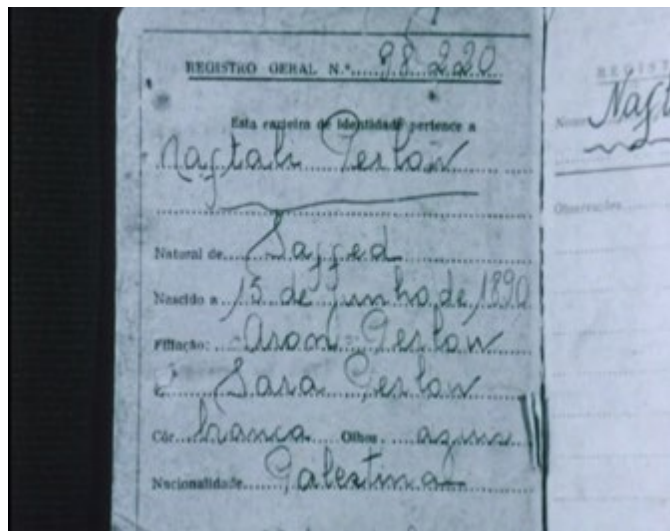 REGISTRO GERAL N.º 98.220
Esta carteira de identidade pertence a
Naftali Gerlow
Natural de Saffed
Nascido a 15 de junho de 1890
Filiação: Aron Gerlow
e Sara Gerlow
Côr branca Olhos azues
Nacionalidade Palestina
REGIST
Nome Naft
Observações